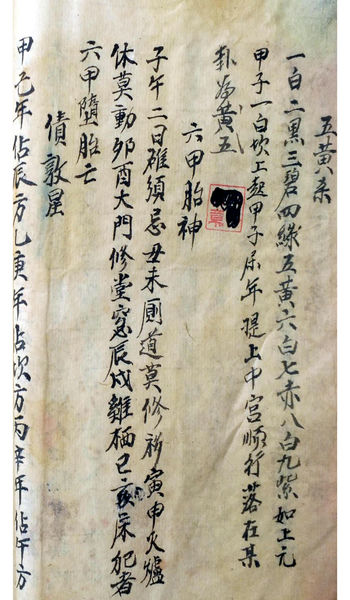 五黃系
一白二黑三碧四綠五黃六白七赤八白九紫如上元
甲子一白坎上起甲子尽年提上中宮順行落在某
卦為黃五
六甲胎神
子午二日碓須忌丑未厠道莫修移寅申火爐
休莫動卯酉大門修堂窓辰戌雞栖巳亥床犯者
六甲墮胎亡
債敦星
甲己年佔辰方乙庚年佔坎方丙辛年佔午方